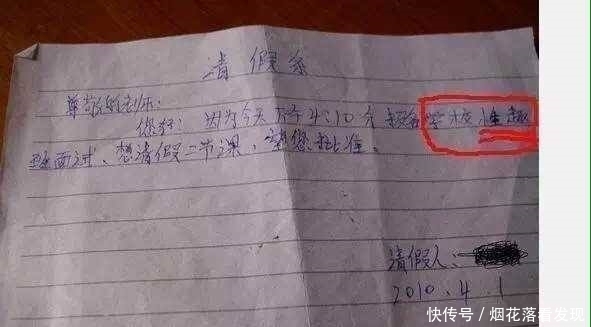 请假条
尊敬的老师:
您好: 因为今天下午4:10分报名学校性趣
班面试、想请假二节课,望您批准。
请假人:
2010.4.1
快传号 / 烟花落看发现